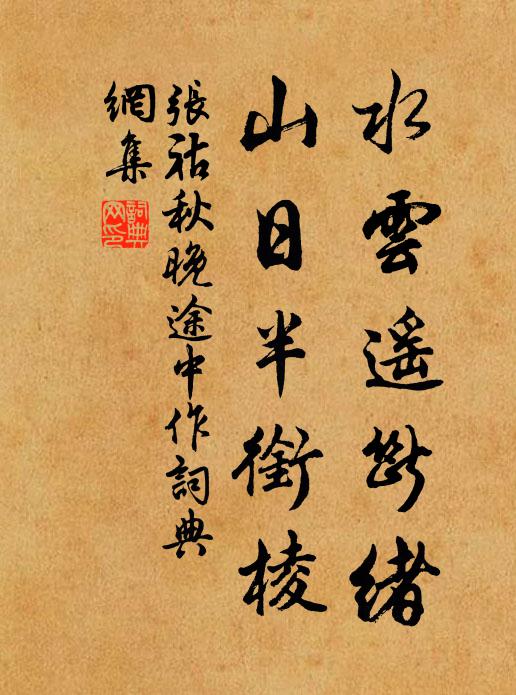 水雲遥斷緒
山日半銜棱
張祜秋晚途中作詞典
網集
詞典
网印